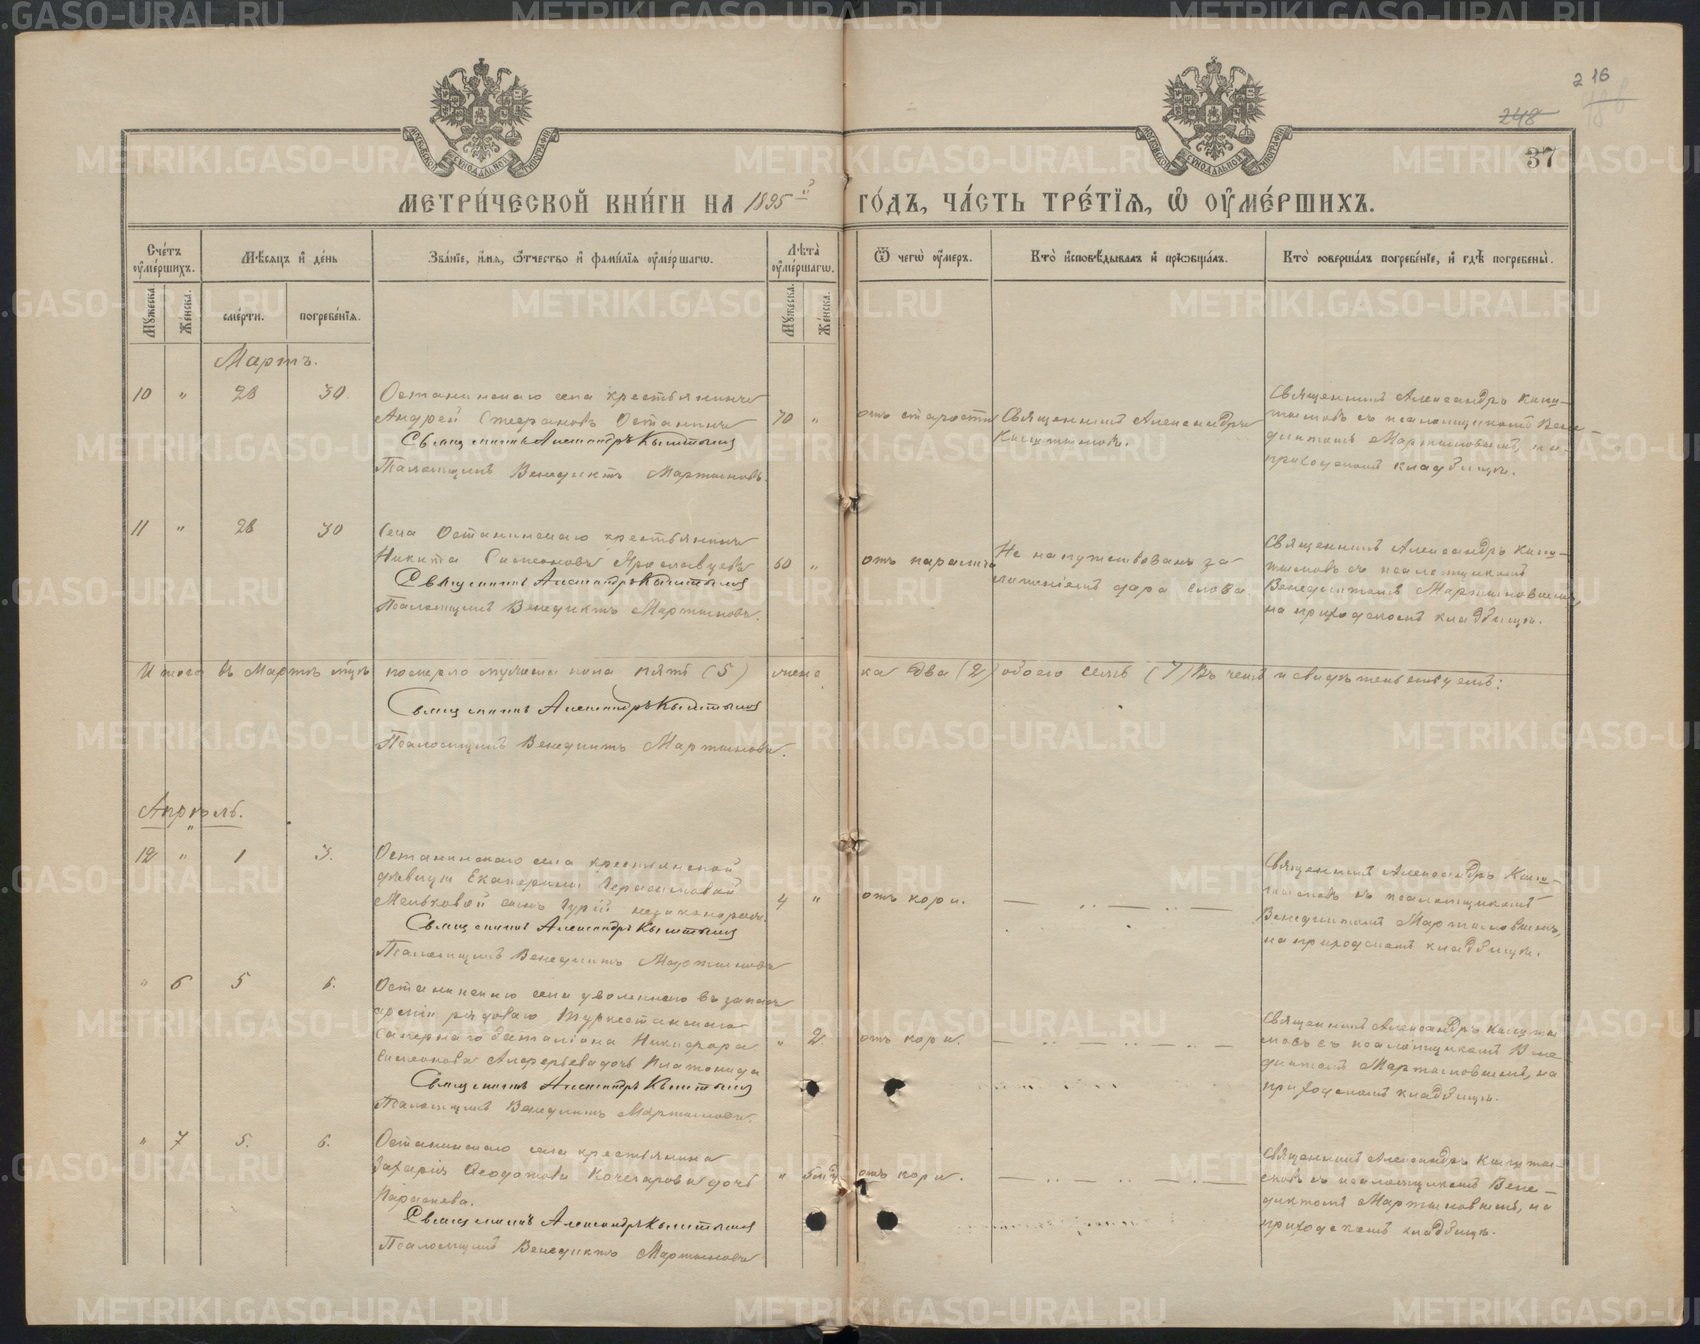 2 16
248
37
МЕТРИ́ЧЕСКОЙ КНИ́ГИ НА 1895й ГО́ДЪ, ЧА́СТЬ ТРЕ́ТЇѦ, Ѡ҆ ОУ҆МЕ́РШИХЪ.
Сче́тъ оу҆ме́ршихъ.
Мѣ́сяцъ и҆ де́нь
Зва́нїе, и҆́мя, ѻ҆́тчество и҆ фами́лїя оу҆ме́ршагѡ.
Лѣта̀ оу҆ме́ршагѡ.
Ѿ чегѡ̀ оу҆́меръ.
Кто̀ и҆сповѣ́дывалъ и҆ прїѡбща́лъ.
Кто̀ соверша́лъ погребе́нїе, и҆ гдѣ̀ погребены̀.
Му́жеска.
Же́нска.
сме́рти.
погребе́нїя.
Му́жеска.
Же́нска.
Мартъ.
10 " 28 30
Останинскаго села крестьянинъ
Андрей Стефановъ Останинъ
Священникъ Александръ Кыштымов
Псаломщикъ Венедиктъ Мартыновъ.
70 "
отъ старости
Священникъ Александръ
Кыштымовъ.
Священникъ Александръ Кыш-
тымовъ съ псаломщикомъ Вене-
диктомъ Мартыновымъ, на
приходскомъ кладбищѣ.
11 " 28 30
Села Останинскаго крестьянинъ
Никита Симеоновъ Ярославцевъ
Священникъ Александръ Кыштымов
Псаломщикъ Венедиктъ Мартыновъ.
60 "
отъ паралича
Не напутствованъ за
лишеніемъ дара слова
Священникъ Александръ Кыш-
тымовъ съ псаломщикомъ
Венедиктомъ Мартыновымъ,
на приходскомъ кладбищѣ.
Итого въ Мартѣ мцѣ померло мужеска пола пять (5) женска два (2) обоего семь (7) Въ чемъ и свидѣтельствуемъ:
Священникъ Александръ Кыштымов
Псаломщикъ Венедиктъ Мартыновъ.
Апрѣль.
12 " 1 3.
Останинскаго села крестьянской
дѣвицы Екатерины Герасимовой
Мельковой сынъ Гурій незаконорож.
Священникъ Александръ Кыштымов
Псаломщикъ Венедиктъ Мартыновъ
4 "
отъ кори.
Священникъ Александръ Кыш-
тымовъ съ псаломщикомъ
Венедиктомъ Мартыновымъ,
на приходскомъ кладбищѣ.
" 6 5 6.
Останинскаго села уволеннаго въ запасъ
арміи рядоваго Туркестанскаго
Сапернаго баталіона Никифора
Симеонова Алферьева дочь Платонида
Священникъ Александръ Кыштымов
Псаломщикъ Венедиктъ Мартыновъ.
" 2
отъ кори.
Священникъ Александръ Кышты
мовъ съ псаломщикомъ Вене
диктомъ Мартыновымъ, на
приходскомъ кладбищѣ.
" 7 5. 6.
Останинскаго села крестьянина
Захарія Ѳеодотова Кочегарова дочь
Священникъ Александръ Кыштымов
Псаломщикъ Венедиктъ Мартыновъ
отъ кори.
Священникъ Александръ Кышты-
мовъ съ псаломщикомъ Вене-
диктомъ Мартыновымъ, на
приходскомъ кладбищѣ.
METRIKI.GASO-URAL.RU